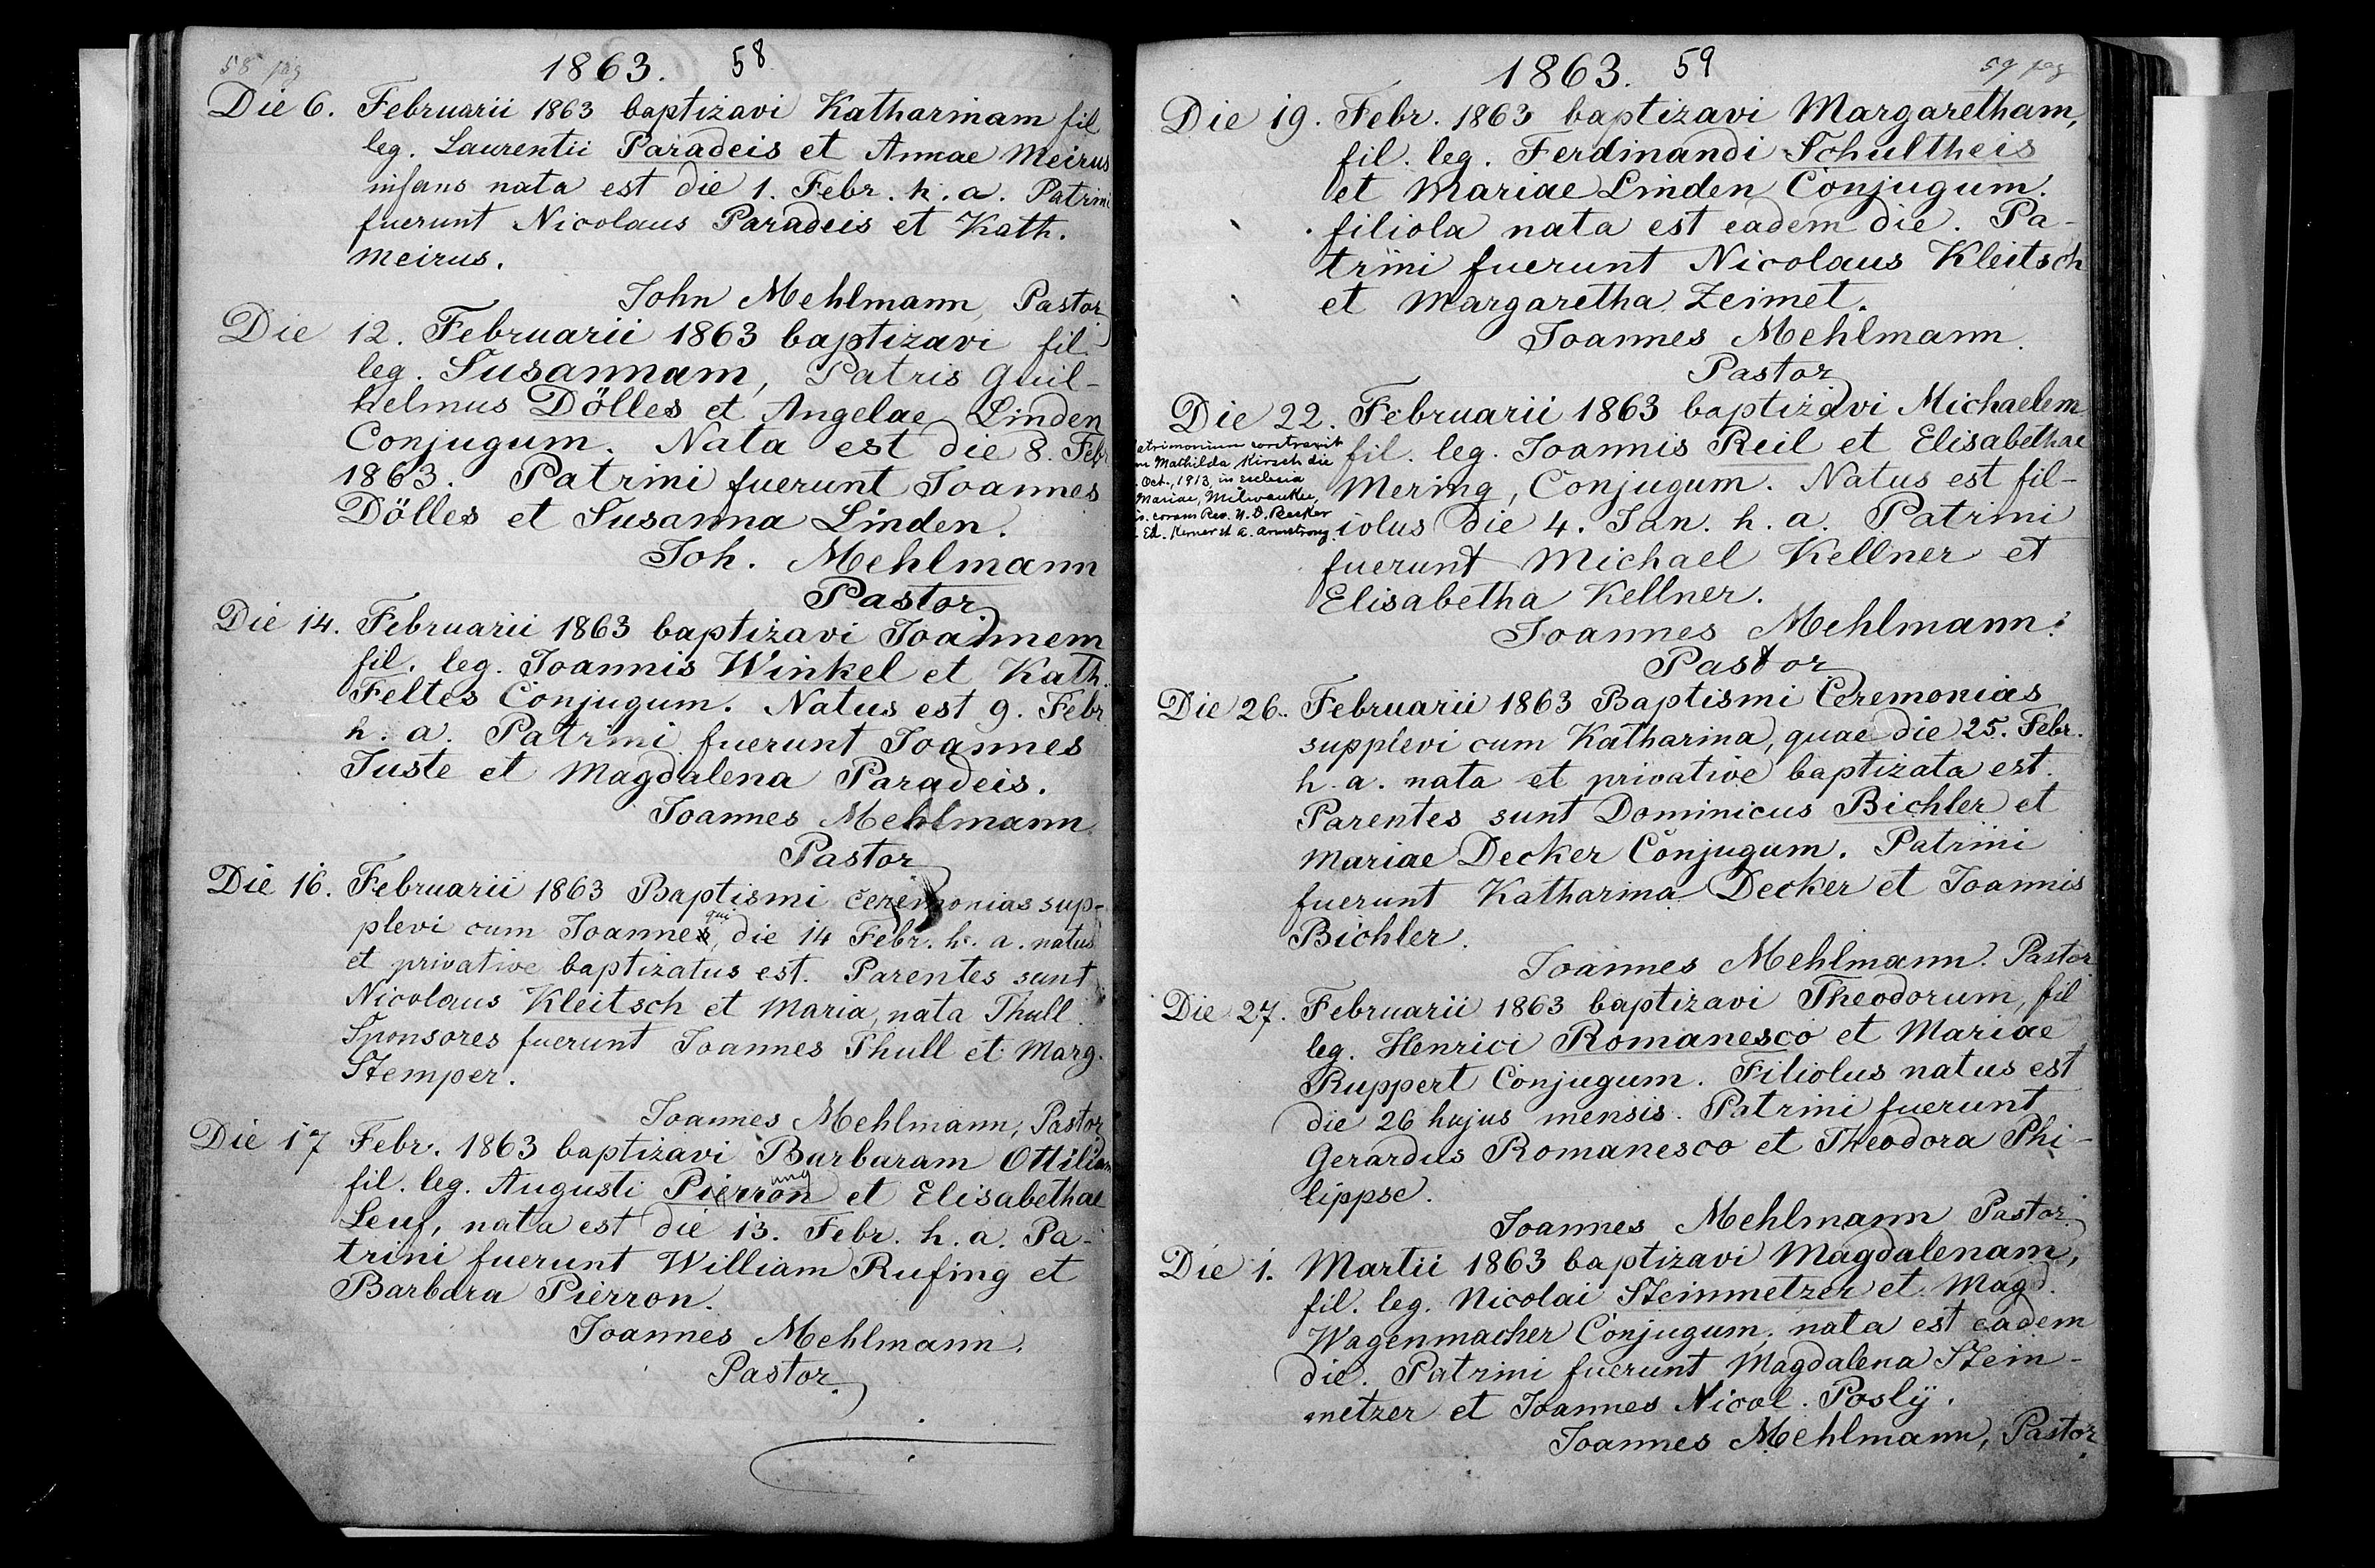 58 pag
1863. 58
Die 6. Februarii 1863 baptizavi Katharinam fil
leg. Laurentii Paradeis et Annae Meirus
infans nata est die 1. Febr. h. a. Patrini
fuerunt Nicolaus Paradeis et Kath.
Meirus.
John Mehlmann, Pastor
Die 12. Februarii 1863 baptizavi fil.
leg. Susannam, Patris Guil-
helmus Dölles et Angelae Linden
Conjugum. Nata est die 8. Febr
1863. Patrini fuerunt Joannes
Dölles et Susanna Linden.
Joh. Mehlmann
Pastor
Die 14. Februarii 1863 baptizavi Joannem
fil. leg. Joannis Winkel et Kath.
Feltes Conjugum. Natus est 9. Febr
h. a. Patrini fuerunt Joannes
Juste et Magdalena Paradeis.
Joannes Mehlmann
Pastor
Die 16. Februarii 1863 Baptismi ceremonias sup-
plevi cum Joanne, qui die 14 Febr. h. a. natus
et privative baptizatus est. Parentes sunt
Nicolaus Kleitsch et Maria, nata Thull.
Sponsores fuerunt Joannes Thull et Marg.
Stemper.
Joannes Mehlmann, Pastor
Die 17 Febr. 1863 baptizavi Barbaram Ottiliam
ung
fil. leg. Augusti Pierron et Elisabethae
Leuf, nata est die 13. Febr. h. a. Pa-
trini fuerunt William Rufing et
Barbara Pierron.
Joannes Mehlmann.
Pastor.
59 pag
1863. 59
Die 19. Febr. 1863 baptizavi Margaretham,
fil. leg. Ferdinandi Schultheis
et Mariae Linden Conjugum.
filiola nata est eadem die. Pa-
trini fuerunt Nicolaus Kleitsch
et Margaretha Zeimet.
Joannes Mehlmann.
Pastor
Die 22. Februarii 1863 baptizavi Michaelem
fil. leg. Joannis Reil et Elisabethae
Mering, Conjugum. Natus est fil-
iolus die 4. Jan. h. a. Patrini
fuerunt Michael Kellner et
Elisabetha Kellner.
Joannes Mehlmann.
Pastor
atrimonium contraxit
m Mathilda Kirsch die
. Oct., 1913, in ecclesia
Mariae, Milwaukee,
is. coram Rev. H. B. Becker
. Ed. Kerner et A. Armstrong.
Die 26. Februarii 1863 Baptismi Ceremonias
supplevi cum Katharina, quae die 25. Febr.
h. a. nata et privative baptizata est.
Parentes sunt Dominicus Bichler et
Mariae Decker Conjugum. Patrini
fuerunt Katharina Decker et Joannis
Bichler.
Joannes Mehlmann. Pastor
Die 27. Februarii 1863 baptizavi Theodorum, fil
leg. Henrici Romanesco et Mariae
Ruppert Conjugum. Filiolus natus est
die 26 hujus mensis. Patrini fuerunt
Gerardus Romanesco et Theodora Phi-
lippse.
Joannes Mehlmann Pastor.
Die 1. Martii 1863 baptizavi Magdalenam,
fil. leg. Nicolai Steinmetzer et Magd.
Wagenmacher Conjugum. nata est eadem
die. Patrini fuerunt Magdalena Stein-
metzer et Joannes Nicol. Poslÿ.
Joannes Mehlmann, Pastor.